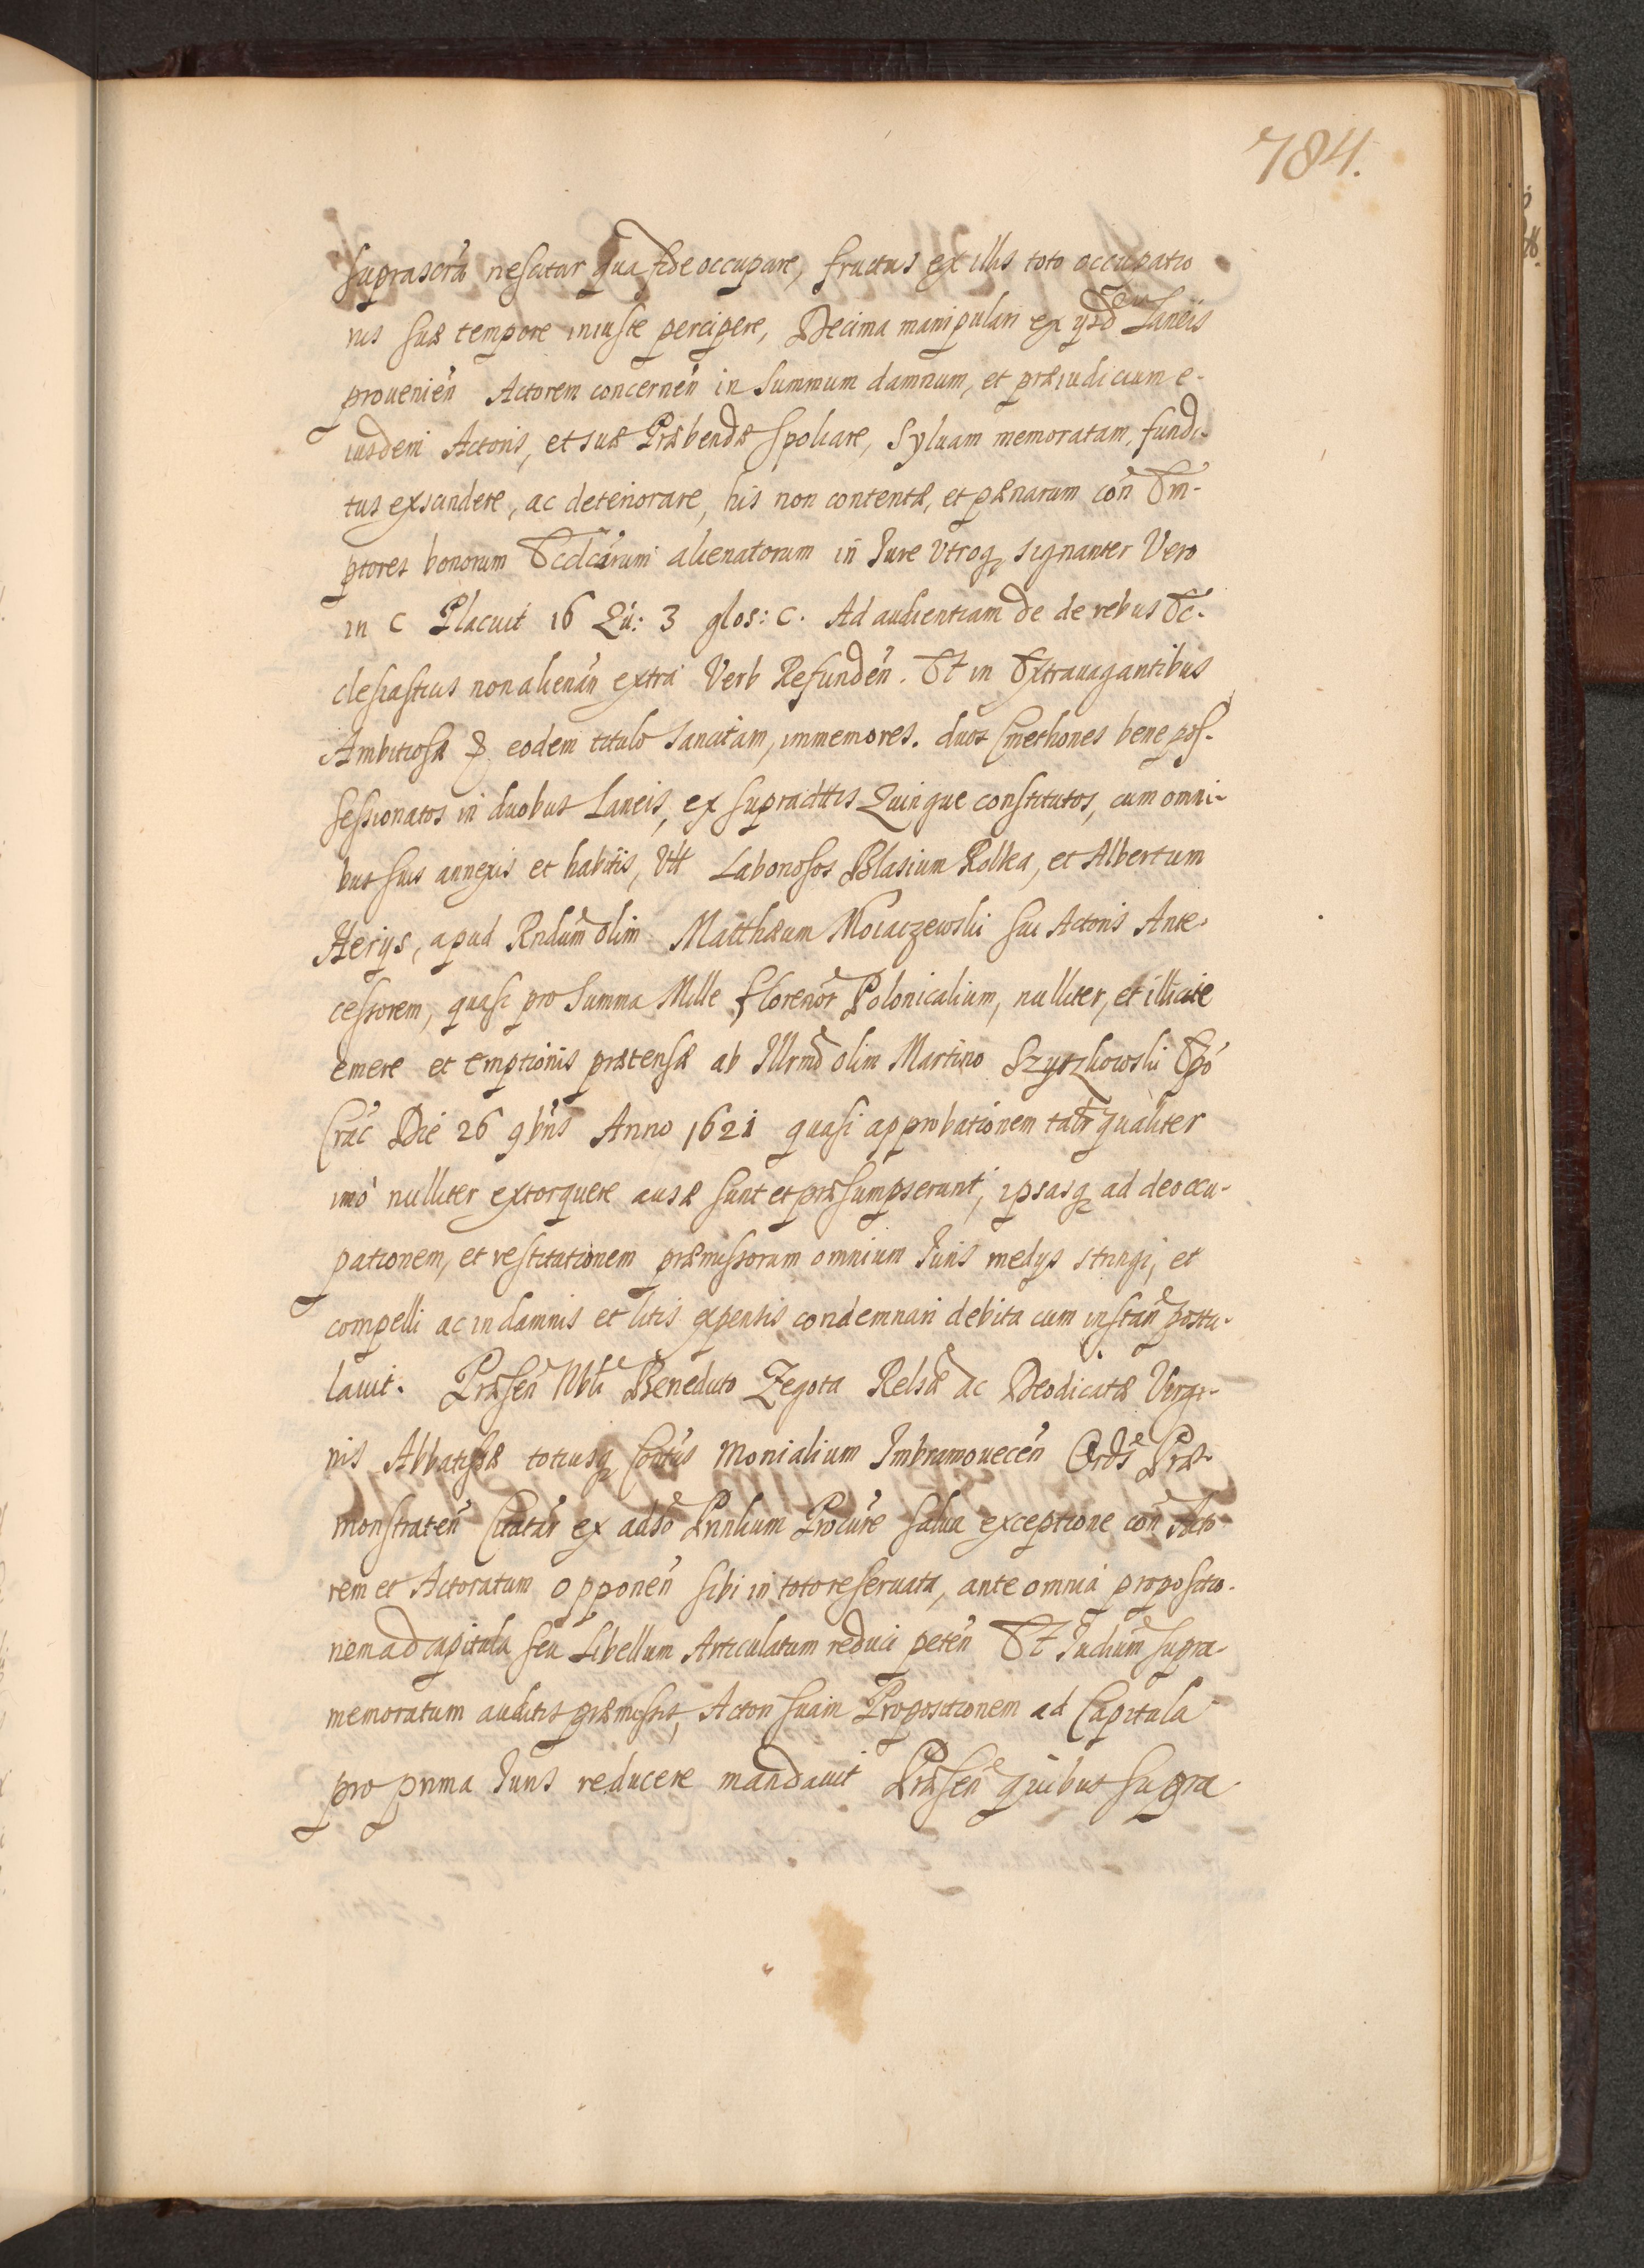 784.
suprascrã nescitur qua fide occupare, fructus ex illis toto occupatio
nis suæ tempore iniuste percipere, Decima manipulari ex ijsd Laneis
provenieñ Actorem concerneñ in summum damnum, et præiudicium e-
iusdem Actoris, et suæ Præbendæ spoliare, Sylvam memoratam, fundi-
tus exscindere, ac deteriorare, his non contentæ, et pænarum coñ Em-
ptores bonorum Ecclcarum alienatorum in Jure Utroq signanter Vero
in C Placuit 16 Qu: 3 glos: C. Ad audientiam de de rebus Ec-
clesiasticis non alienañ extra Verb Refundeñ. Et in Extravagantibus
Ambitiosæ eodem titulo sancitam, immemores. duos Cmethones bene pos-
sessionatos in duobus Laneis, ex supradttis Quinque constitutos, cum omni-
bus suis annexis et habitis, Utt Laboriosos Blasium Rolka, et Albertum
Herijs, apud Rndum olim Matthæum Mocaczewski sui Actoris Ante-
cessorem, quasi pro Summa Mille florenor Polonicalium, nulliter, et illicite
emere et emptionis prætensæ ab Illrmo olim Martino Szyszkowski Epo
Crac Die 26 9bris Anno 1621 quasi approbationem talr qualiter
imò nulliter extorquere ausæ sunt et præsumpserunt, ipsasq ad deoccu-
pationem, et restitutionem præmissorum omnium Juris medijs stringi, et
compelli ac in damnis et litis expensis condemnari debita cum instañ postu-
lavit. Præseñ Nbli Benedicto Zegota Relsæ ac Deodicatæ Virgi-
nis Abbatissæ totiusq Contus Monialium Imbramoveceñ Ordis Præ-
monstrateñ Citatar ex adso Prinlium Procure salva exceptione coñ Acto-
rem et Actoratum opponeñ sibi in toto reservata, ante omnia propositio-
nem ad capitula seu Libellum Articulatum reduci peteñ Et Judium supra-
memoratum auditis præmissis, Actori suam Propositionem ad Capitula
pro prima Juris reducere mandavit Præseñ quibus supra